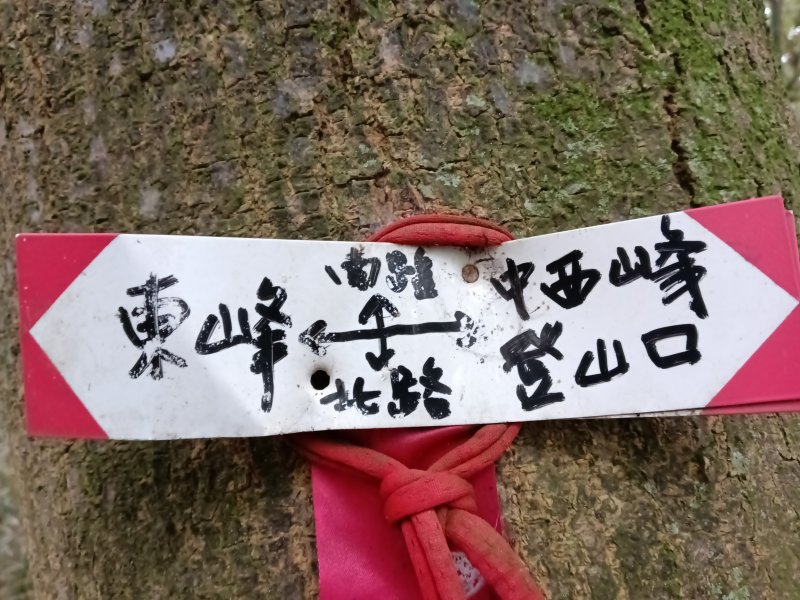 東山峰
南路
北路
中西山峰
登山口